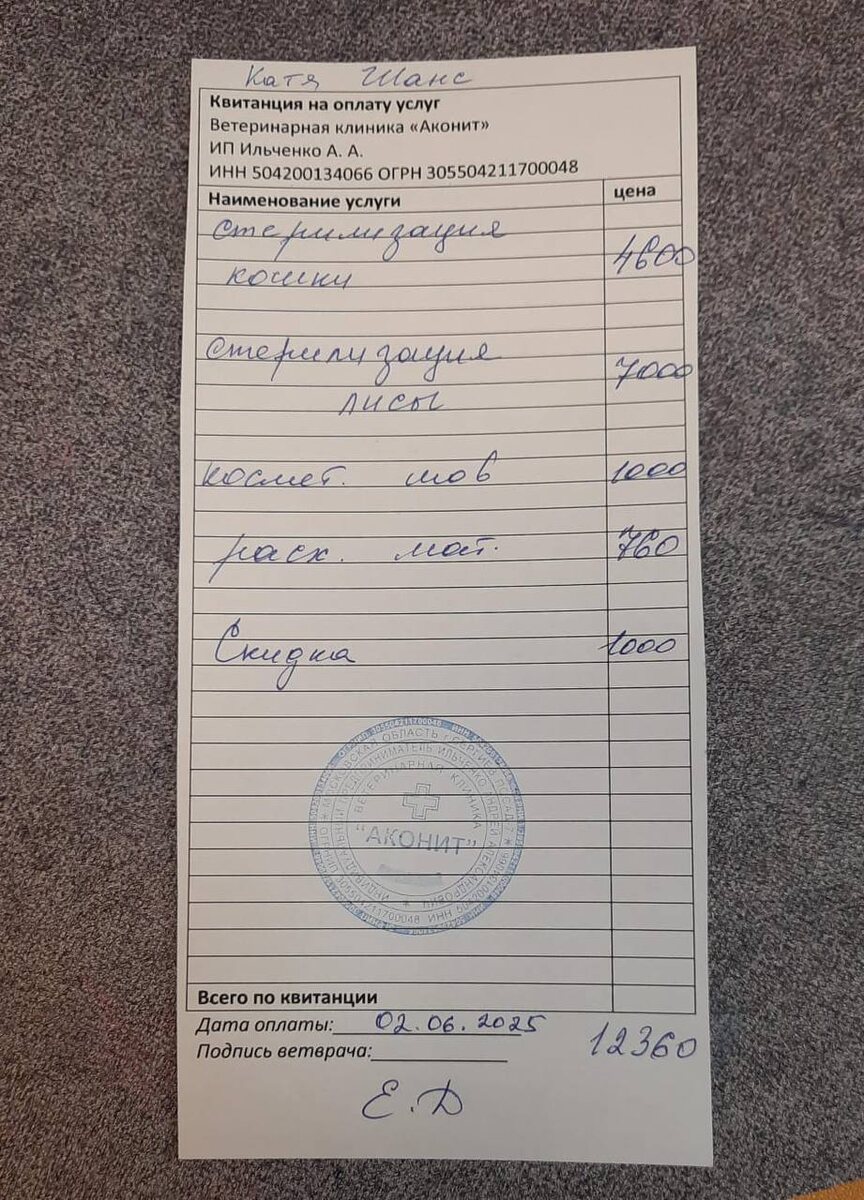 Катя Шанс
Квитанция на оплату услуг
Ветеринарная клиника «Аконит»
ИП Ильченко А. А.
ИНН 504200134066 ОГРН 305504211700048
Наименование услуги цена
стерилизация
кошки 4600
стерилизация 7000
лисы
космет. шов 1000
расх. мат. 760
Скидка 1000
МОСКОВСКАЯ ОБЛАСТЬ Г.СЕРГИЕВ ПОСАД
ИНДИВИДУАЛЬНЫЙ ПРЕДПРИНИМАТЕЛЬ ИЛЬЧЕНКО АНДРЕЙ АЛЕКСАНДРОВИЧ
ВЕТЕРИНАРНАЯ КЛИНИКА
"АКОНИТ"
Всего по квитанции
Дата оплаты: 02.06.2025
12360
Подпись ветврача:
Е.Д